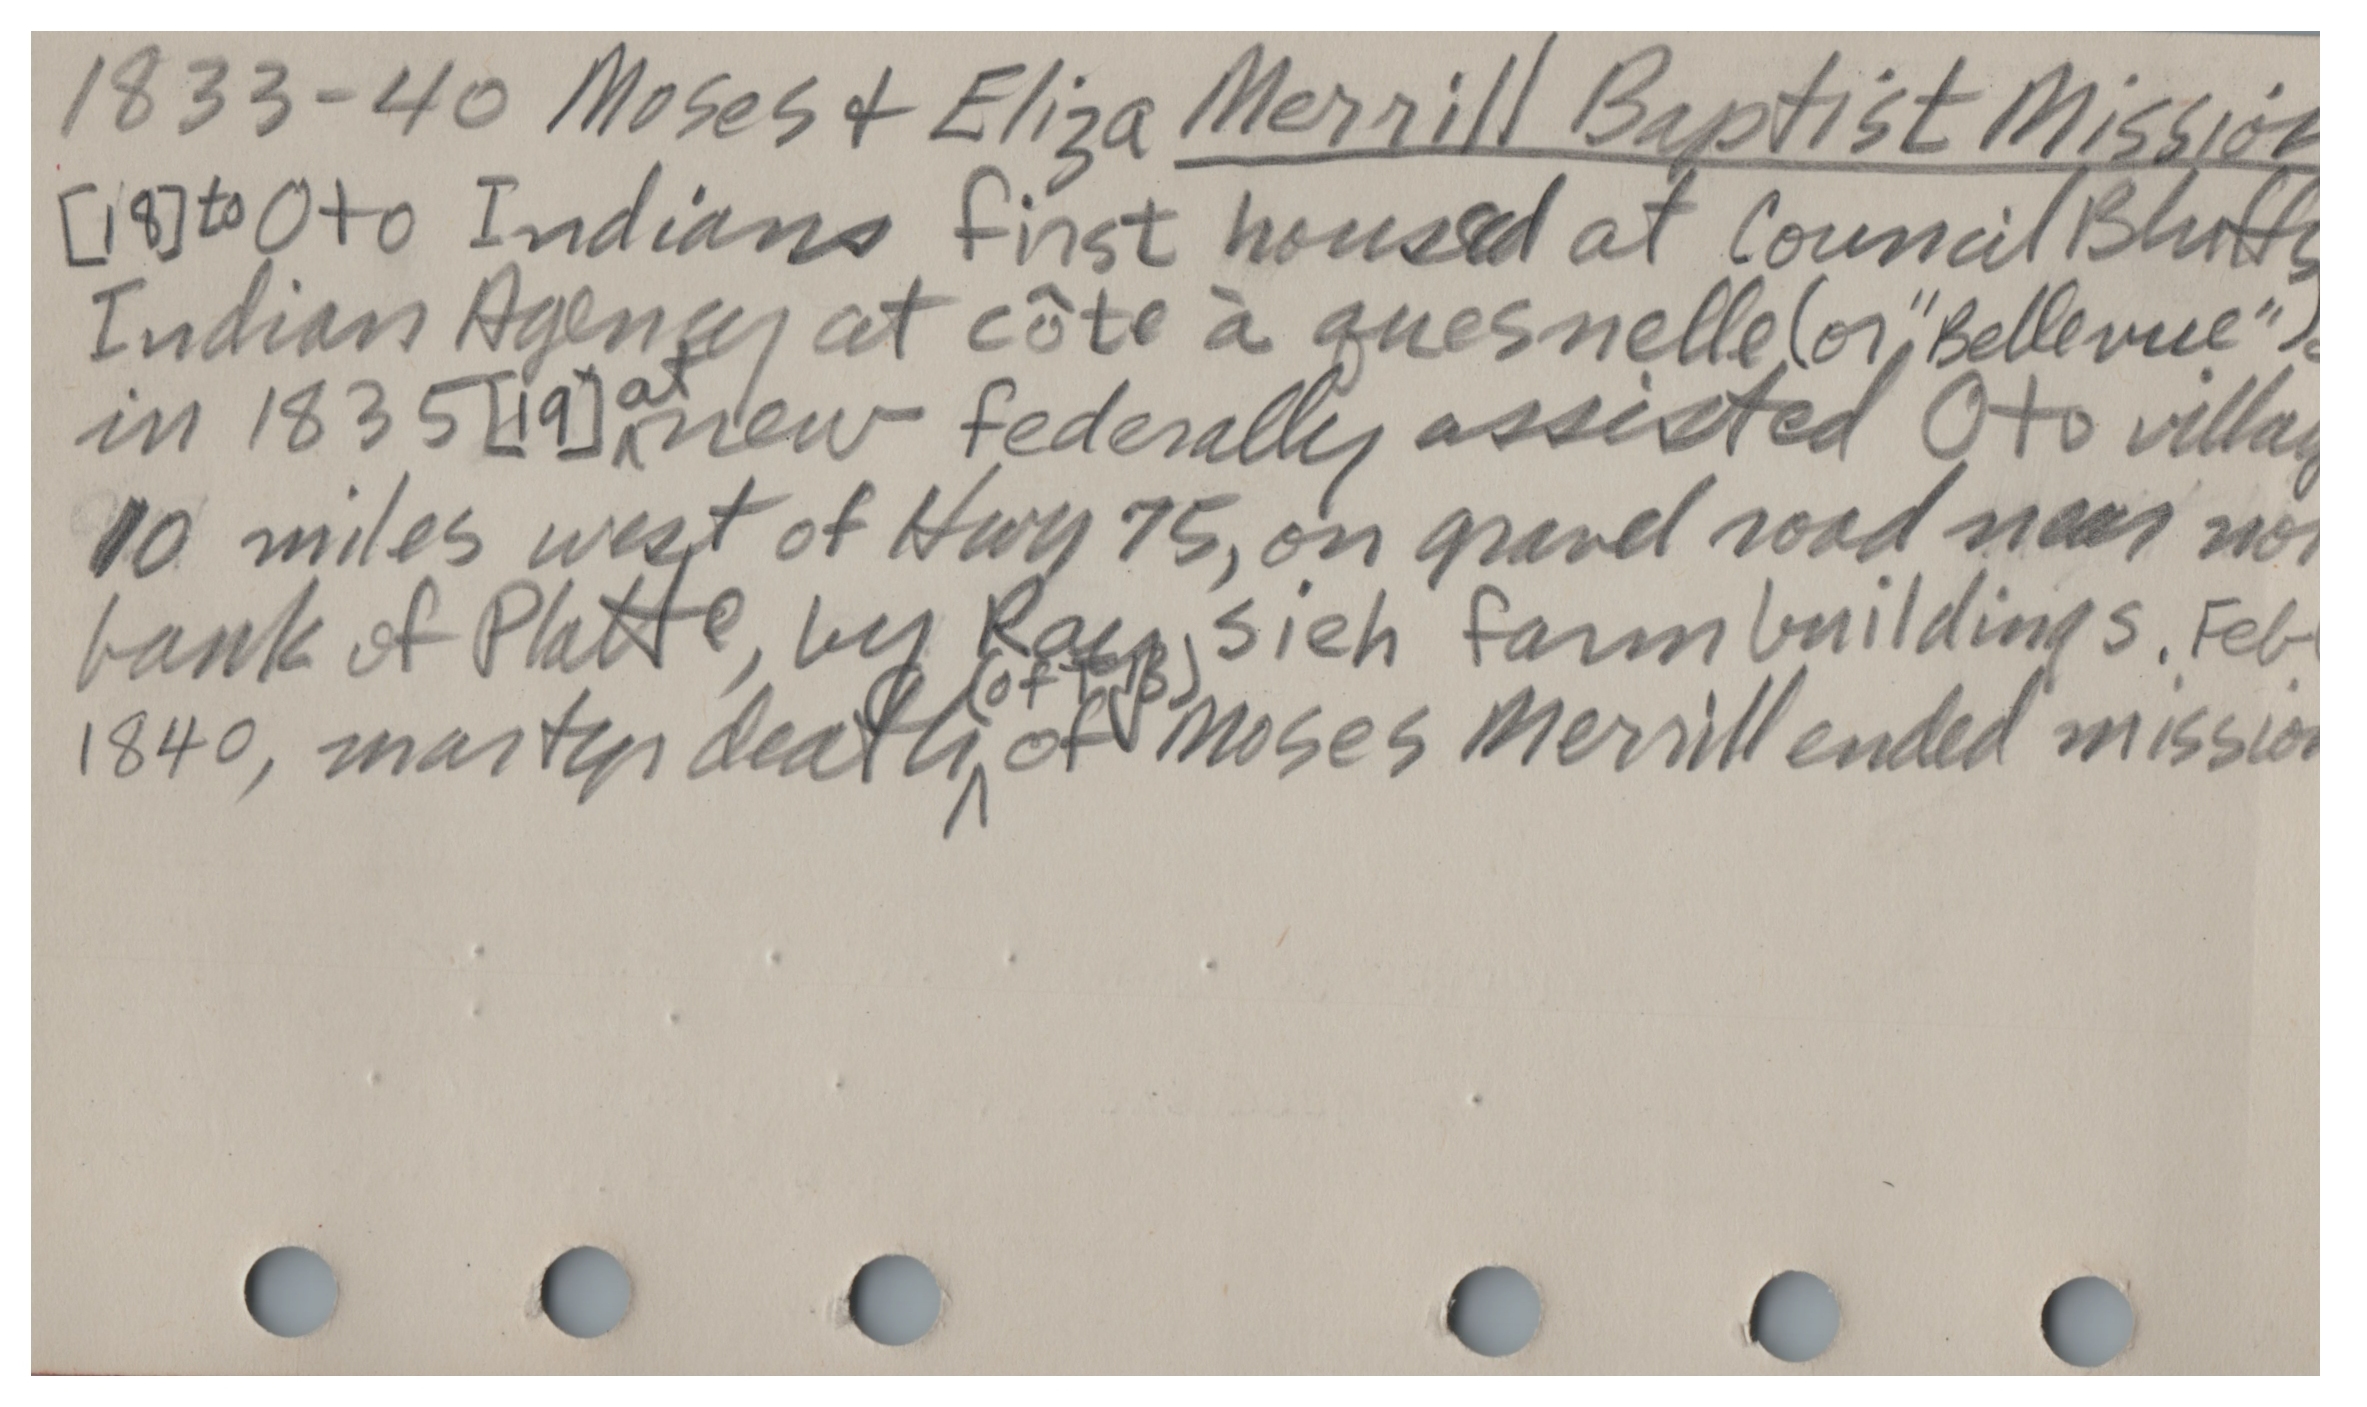 1833-40 Moses & Eliza Merrill Baptist Mission
[18] to Oto Indians first housed at Council Bluffs
Indian Agency at côte à quesnelle (or "Bellevue")
in 1835 [19] at new federally assisted Oto villag
10 miles west of Hwy 75, on gravel road near nor
bank of Platte, by Ray Sieh farm buildings. Feb
1840, martyr death (of TB) of Moses Merrill ended mission